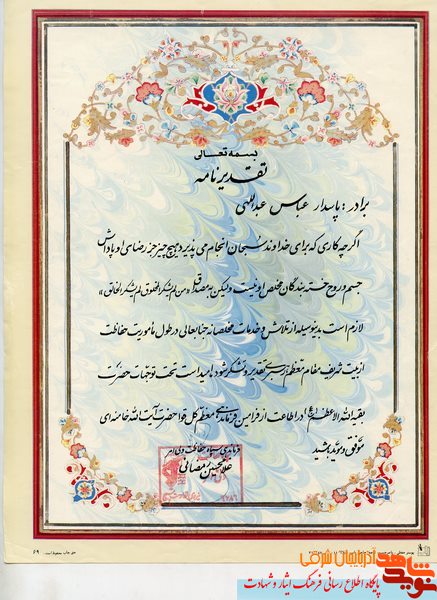 بسمه تعالی
تقدیرنامه
برادر: پاسدار عباس عبداللهی
اگرچه کاری که برای خداوند سبحان انجام می پذیرد هیچ چیز جز رضای او پاداش
جسم و روح خسته بندگان مخلص او نیست ولیکن به مصداق «من لم یشکر المخلوق لم یشکر الخالق»
لازم است بدینوسیله از تلاش و خدمات مخلصانه جنابعالی در طول مأموریت حفاظت
از بیت شریف مقام معظم رهبری تقدیر و تشکر شود. امید است تحت توجهات حضرت
بقیه الله الاعظم (عج) در اطاعت از فرامین فرماندهی معظم کل قوا حضرت آیت الله خامنه ای
موفق و موید باشید
فرماندهی سپاه حفاظت ولی امر
غلامحسین رمضانی
حق چاپ محفوظ است.
۶۹
نوید شاهد آذربایجان شرقی
پایگاه اطلاع رسانی فرهنگ ایثار و شهادت